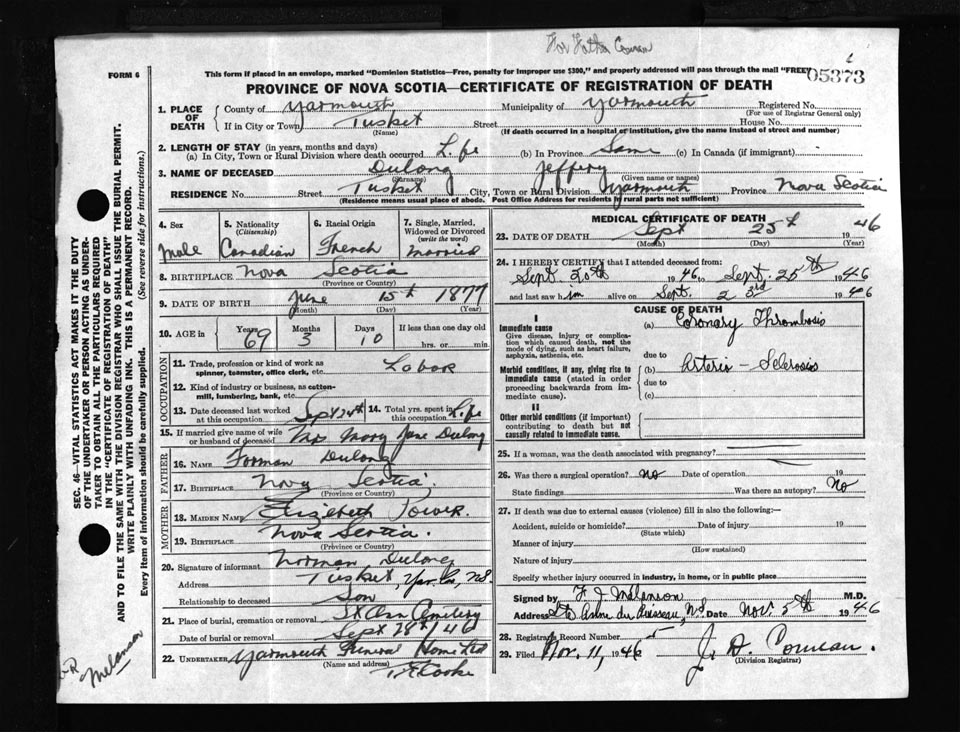 For Father Comeau
FORM 6
This form if placed in an envelope, marked "Dominion Statistics—Free, penalty for improper use $300," and property addressed will pass through the mail "FREE"
05373
PROVINCE OF NOVA SCOTIA—CERTIFICATE OF REGISTRATION OF DEATH
1. PLACE OF DEATH
County of Yarmouth Municipality of Yarmouth Registered No.
(For use of Registrar General only)
If in City or Town Tusket Street House No.
(Name) (If death occurred in a hospital or institution, give the name instead of street and number)
2. LENGTH OF STAY (in years, months and days)
(a) In City, Town or Rural Division where death occurred Life (b) In Province Same (c) In Canada (if immigrant)
3. NAME OF DECEASED Dulong Jeffery
(Surname) (Given name or names)
RESIDENCE No. Street Tusket City, Town or Rural Division Yarmouth Province Nova Scotia
(Residence means usual place of abode. Post Office Address for residents of rural parts not sufficient)
4. Sex 5. Nationality (Citizenship) 6. Racial Origin 7. Single, Married, Widowed or Divorced (write the word)
Male Canadian French Married
8. BIRTHPLACE Nova Scotia
(Province or Country)
9. DATE OF BIRTH June 15th 1877
(Month) (Day) (Year)
10. AGE in Years 69 Months 3 Days 10 If less than one day old
hrs. or min.
OCCUPATION
11. Trade, profession or kind of work as spinner, teamster, office clerk, etc. Labor
12. Kind of industry or business, as cotton-mill, lumbering, bank, etc.
13. Date deceased last worked at this occupation Sept 24th 14. Total yrs. spent in this occupation Life
15. If married give name of wife or husband of deceased Mrs Mary Jane Dulong
FATHER
16. NAME Forman Dulong
17. BIRTHPLACE Nova Scotia.
(Province or Country)
MOTHER
18. MAIDEN NAME Elizabeth Tower
19. BIRTHPLACE Nova Scotia.
(Province or Country)
20. Signature of informant Norman Dulong
Address Tusket, Yar. Co, N.S.
Relationship to deceased Son
21. Place of burial, cremation or removal St Ann Cemetery
Date of burial or removal Sept 28th/46
22. UNDERTAKER Yarmouth Funeral Home Ltd
(Name and address) T.E. Cooke
MEDICAL CERTIFICATE OF DEATH
23. DATE OF DEATH Sept 25th 1946
(Month) (Day) (Year)
24. I HEREBY CERTIFY that I attended deceased from:
Sept. 20th 1946 to Sept. 25th 1946
and last saw him alive on Sept. 23rd 1946
CAUSE OF DEATH
I
Immediate cause
Give disease, injury or complication which caused death, not the mode of dying, such as heart failure, asphyxia, asthenia, etc.
(a) Coronary Thrombosis
due to
Morbid conditions, if any, giving rise to immediate cause (stated in order proceeding backwards from immediate cause).
(b) Arterio-Sclerosis
due to
(c)
II
Other morbid conditions (if important) contributing to death but not causally related to immediate cause.
25. If a woman, was the death associated with pregnancy?
26. Was there a surgical operation? No Date of operation 19
State findings Was there an autopsy? No
27. If death was due to external causes (violence) fill in also the following:—
Accident, suicide or homicide? Date of injury 19
(State which)
Manner of injury
(How sustained)
Nature of injury
Specify whether injury occurred in industry, in home, or in public place
Signed by F. J. Melanson M.D.
Address Ste Anne du Ruisseau, N.S. Date Nov. 5th 1946
28. Registrar's Record Number 5
29. Filed Nov. 11, 1946 J. D. Comeau.
(Division Registrar)
SEC. 46—VITAL STATISTICS ACT MAKES IT THE DUTY
OF THE UNDERTAKER OR PERSON ACTING AS UNDER-
TAKER TO OBTAIN ALL THE PARTICULARS REQUIRED
IN THE "CERTIFICATE OF REGISTRATION OF DEATH"
AND TO FILE THE SAME WITH THE DIVISION REGISTRAR WHO SHALL ISSUE THE BURIAL PERMIT.
WRITE PLAINLY WITH UNFADING INK. THIS IS A PERMANENT RECORD.
Every item of information should be carefully supplied. (See reverse side for instructions.)
Melanson